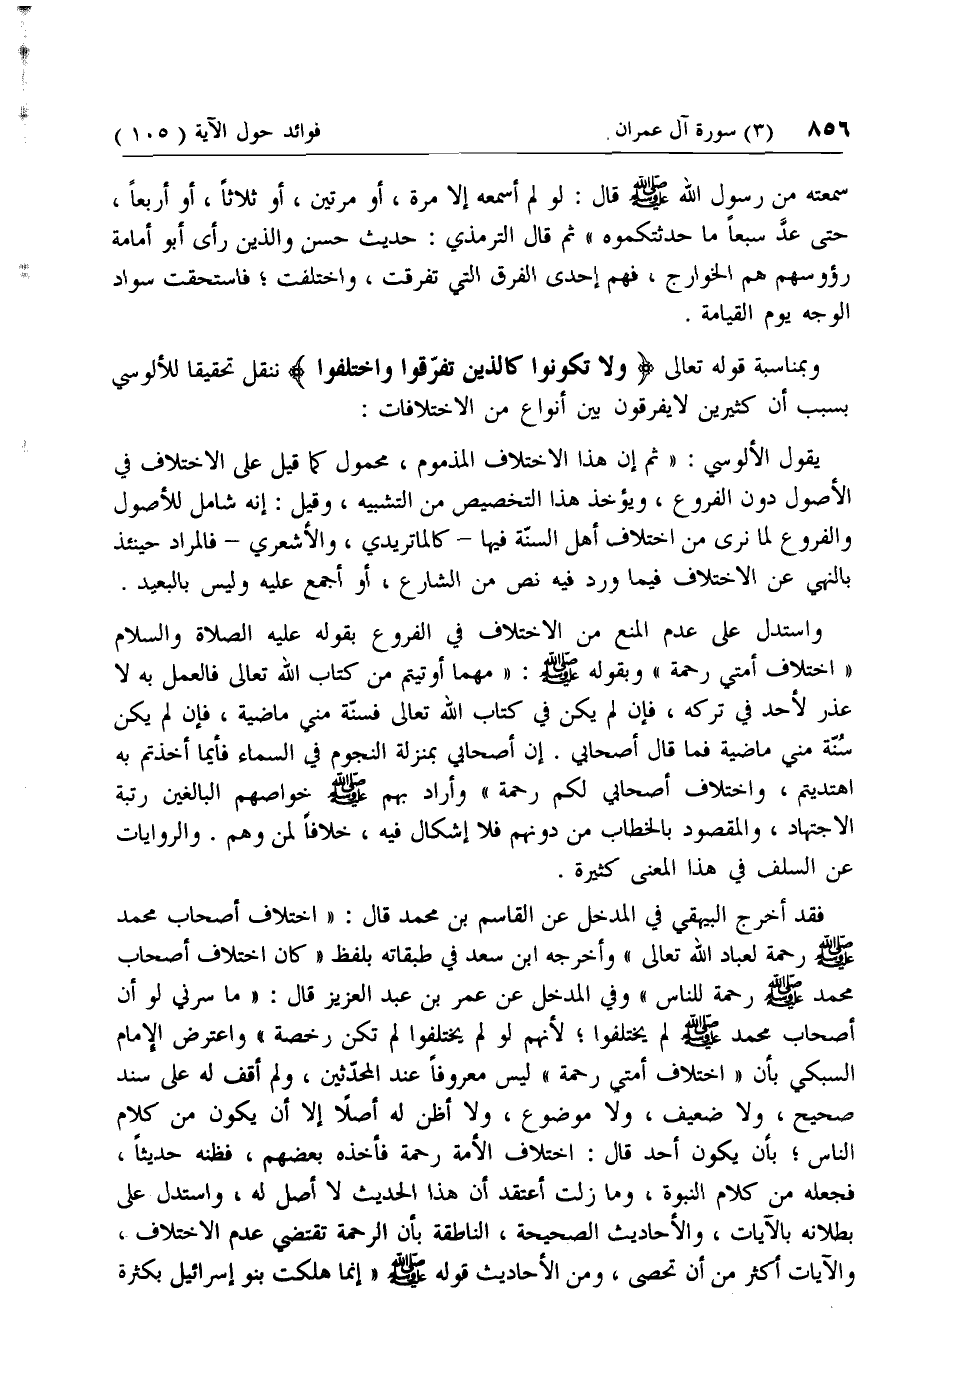 ٨٥٦ (٣) سورة آل عمران فوائد حول الآية (١٠٥)
سمعته من رسول الله ﷺ قال : لو لم أسمعه إلا مرة ، أو مرتين ، أو ثلاثاً ، أو أربعاً ،
حتى عدَّ سبعاً ما حدثتكموه » ثم قال الترمذي : حديث حسن والذين رأى أبو أمامة
رؤوسهم هم الخوارج ، فهم إحدى الفرق التي تفرقت ، واختلفت ؛ فاستحقت سواد
الوجه يوم القيامة .
وبمناسبة قوله تعالى ﴿ ولا تكونوا كالذين تفرّقوا واختلفوا ﴾ ننقل تحقيقا للألوسي
بسبب أن كثيرين لايفرقون بين أنواع من الاختلافات :
يقول الألوسي : « ثم إن هذا الاختلاف المذموم ، محمول كما قيل على الاختلاف في
الأصول دون الفروع ، ويؤخذ هذا التخصيص من التشبيه ، وقيل : إنه شامل للأصول
والفروع لما نرى من اختلاف أهل السنّة فيها – كالماتريدي ، والأشعري – فالمراد حينئذ
بالنهي عن الاختلاف فيما ورد فيه نص من الشارع ، أو أجمع عليه وليس بالبعيد .
واستدل على عدم المنع من الاختلاف في الفروع بقوله عليه الصلاة والسلام
« اختلاف أمتي رحمة » وبقوله ﷺ : « مهما أوتيتم من كتاب الله تعالى فالعمل به لا
عذر لأحد في تركه ، فإن لم يكن في كتاب الله تعالى فسنّة مني ماضية ، فإن لم يكن
سُنّة مني ماضية فما قال أصحابي . إن أصحابي بمنزلة النجوم في السماء فأيما أخذتم به
اهتديتم ، واختلاف أصحابي لكم رحمة » وأراد بهم ﷺ خواصهم البالغين رتبة
الاجتهاد ، والمقصود بالخطاب من دونهم فلا إشكال فيه ، خلافاً لمن وهم . والروايات
عن السلف في هذا المعنى كثيرة .
فقد أخرج البيهقي في المدخل عن القاسم بن محمد قال : « اختلاف أصحاب محمد
ﷺ رحمة لعباد الله تعالى » وأخرجه ابن سعد في طبقاته بلفظ « كان اختلاف أصحاب
محمد ﷺ رحمة للناس » وفي المدخل عن عمر بن عبد العزيز قال : « ما سرني لو أن
أصحاب محمد ﷺ لم يختلفوا ؛ لأنهم لو لم يختلفوا لم تكن رخصة » واعترض الإمام
السبكي بأن « اختلاف أمتي رحمة » ليس معروفاً عند المحدّثين ، ولم أقف له على سند
صحيح ، ولا ضعيف ، ولا موضوع ، ولا أظن له أصلًا إلا أن يكون من كلام
الناس ؛ بأن يكون أحد قال : اختلاف الأمة رحمة فأخذه بعضهم ، فظنه حديثاً ،
فجعله من كلام النبوة ، وما زلت أعتقد أن هذا الحديث لا أصل له ، واستدل على
بطلانه بالآيات ، والأحاديث الصحيحة ، الناطقة بأن الرحمة تقتضي عدم الاختلاف ،
والآيات أكثر من أن تحصى ، ومن الأحاديث قوله ﷺ « إنما هلكت بنو إسرائيل بكثرة